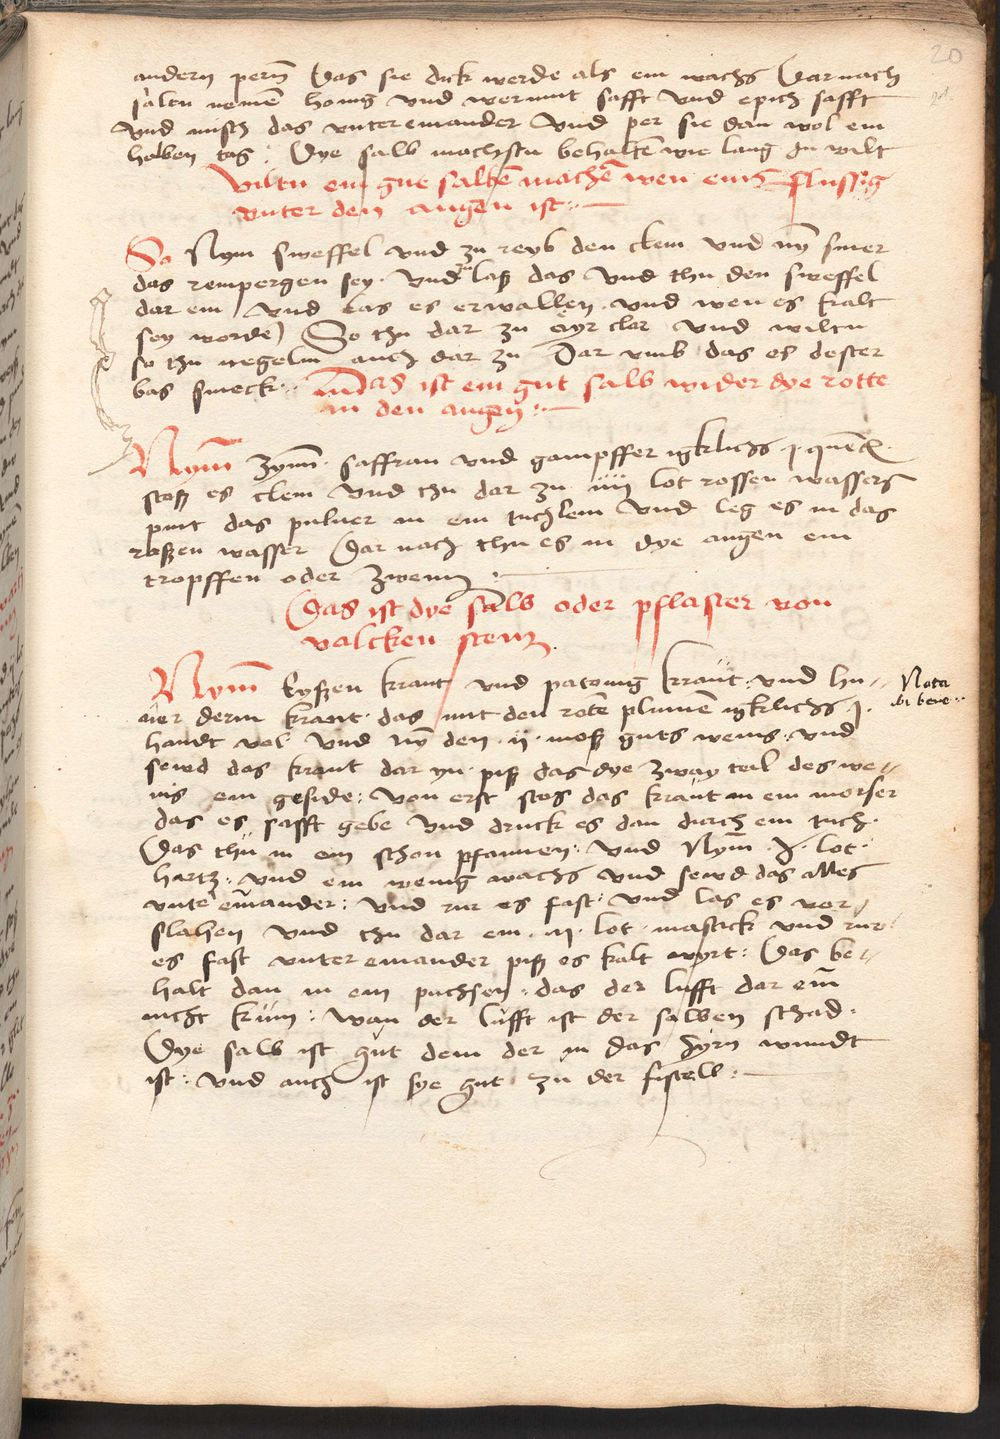 20
andern pern Das sie dick werde als ein wachs Darnach
saltu nemen honig vnd wermut safft vnd epich safft
vnd misch das vntereinander vnd per sie dan wol ein
halben tag : Dye salb machstu behalten wie lang du wilt
Viltu ein gut salben machen wen eins flussig
vnter den augen ist :
So Nym sweffel vnd zu reyb den clein vnd ny smer
das rempergen sey . vnd zu laß das vnd thu den sweffel
dar ein vnd las es erwallen . vnd wen es kalt
sey worden So thu dar zu ayr clar vnd wiltu
so thu negelin auch dar zu Dar vmb das es dester
bas smeck : Das ist ein gut salb wider dye rotte
in den augen :
Nym zymi . saffran vnd gampffer igklichs j quentl .
stoß es clein vnd thu dar zu iiij lot rossen wassers
pint das puluer in ein tuchlein vnd leg es in das
roßen wasser Dar nach thu es in dye augen ein
tropffen oder zwenn :
Das ist dye salb oder pflaster von
valcken stein .
Nym Eyßen kraut vnd patonig kraut : vnd hu=
ner derm kraut . das mit den roten plumen igklichs j .
Nota
bene
handt vol vnd ny den . ij . moß guts weins . vnd
sewd das kraut dar yn . piß das dye zway teil des we=
nis ein geside : von erst stos das kraut in ein morser
das es safft gebe vnd druck es dan durch ein tuch .
Das thu in ein schon pfannen : vnd Nym . x . lot .
hartz : vnd ein wenig wachs vnd sewd das alles
vnter einander : vnd rur es fast : vnd las es vor
slahen vnd thu dar ein . ij . lot . mastick vnd rur
es fast vnter einander piß es kalt wyrt : Das be=
halt dan in ein puchsen : das der lufft dar ein
nicht kum : wan der lufft ist der salben schad .
Dye salb ist gut dem der in das hyrn wundt
ist : vnd auch ist sye gut zu der fistell :